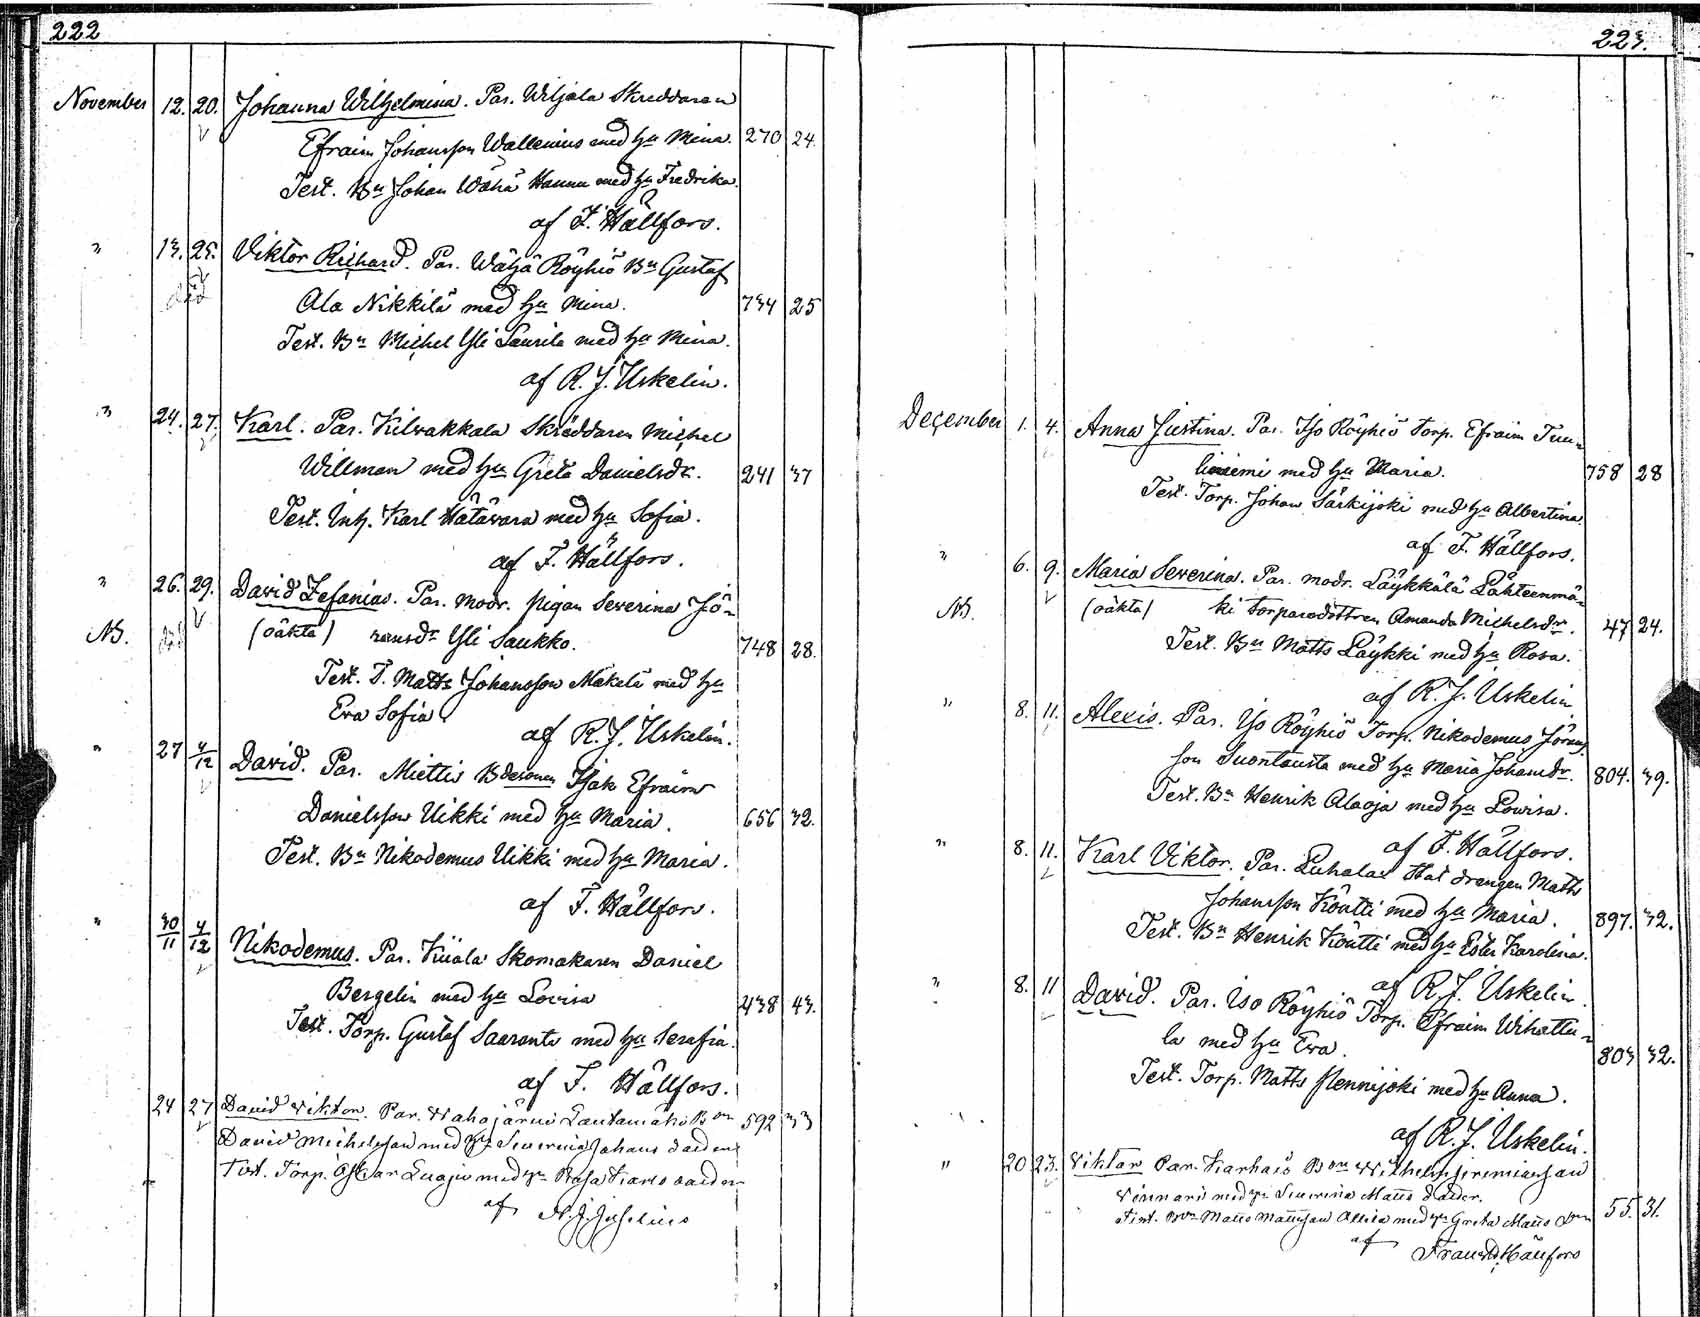 222
November 12. 20. Johanna Wilhelmina. Par. Wiljala Skreddaren
Efraim Johansson Wallenius med hu Mina. 270 24.
Test. Bn Johan Wähä Hannu med hu Fredrika.
af F. Hällfors.
" 13. 25. Viktor Richard. Par. Wähä Röyhiö Bn Gustaf
död
Ala Nikkilä med hu Mina. 734 25
Test. Bn Michel Yli Laurila med hu Mina.
af R. J. Uskelin.
" 24. 27. Karl. Par. Kilwakkala Skräddaren Michel
Willman med hu Greta Danielsdr. 241 37
Test. Inh. Karl Hätävara med hu Sofia.
af F. Hällfors.
" 26. 29. David Zefanias. Par. modr. pigan Severina Jö-
NB. död (oäkta) ransdr Yli Saukko. 748 28.
Test. T. Matts Johansson Mäkelä med hu
Eva Sofia
af R. J. Uskelin.
" 27 4/12 David. Par. Miettis Bdesonen Isak Efraim
Danielsson Uikki med hu Maria. 656 32.
Test. Bn Nikodemus Uikki med hu Maria.
af F. Hällfors.
" 30/11 4/12 Nikodemus. Par. Kiiala Skomakaren Daniel
Bergelin med hu Lovisa 438 43.
Test. Torp. Gustaf Saaranta med hu Serafia.
af F. Hällfors.
24 27 David Viktor. Par. Wahajärwi Lautamäki Bon 592 33
David Michelsson med hu Severina Johans daoter
Test. Torp. Oskar med hu Rosa
af
223.
December 1. 4. Anna Justina. Par. Iso Röyhiö Torp. Efraim Tuu-
liniemi med hu Maria. 758 28
Test. Torp. Johan Särkijoki med hu Albertina
af F. Hällfors.
" 6. 9. Maria Severina. Par. modr. Läykkälä Lähteenmä-
NB. (oäkta) ki Torparedottren Amanda Michelsdr. 47 24.
Test. Bn Matts Läykki med hu Rosa.
af R. J. Uskelin
" 8. 11. Alexis. Par. Iso Röyhiö Torp. Nikodemus Jörans
son Suontausta med hu Maria Johansdr. 804. 39.
Test. Bn Henrik Alaoja med hu Lowisa.
af F. Hällfors.
" 8. 11. Karl Viktor. Par. Luhalax Hat drengen Matts
Johansson Köntti med hu Maria. 897. 32.
Test. Bn Henrik Köntti med hu Ester Karolina.
af R. J. Uskelin.
" 8. 11 David. Par. Iso Röyhiö Torp. Efraim Wihattu-
la med hu Eva. 803 32.
Test. Torp. Matts Hennijoki med hu Anna.
af R. J. Uskelin.
" 20 23. Viktor Par. Karhais Bon Wilhelm Jeremiasson
Vinnari med hu Severina Matts dåtter. 55. 31.
Test. Bon Matts Mattsson Allila med hu Greta Matts
af Hällfors